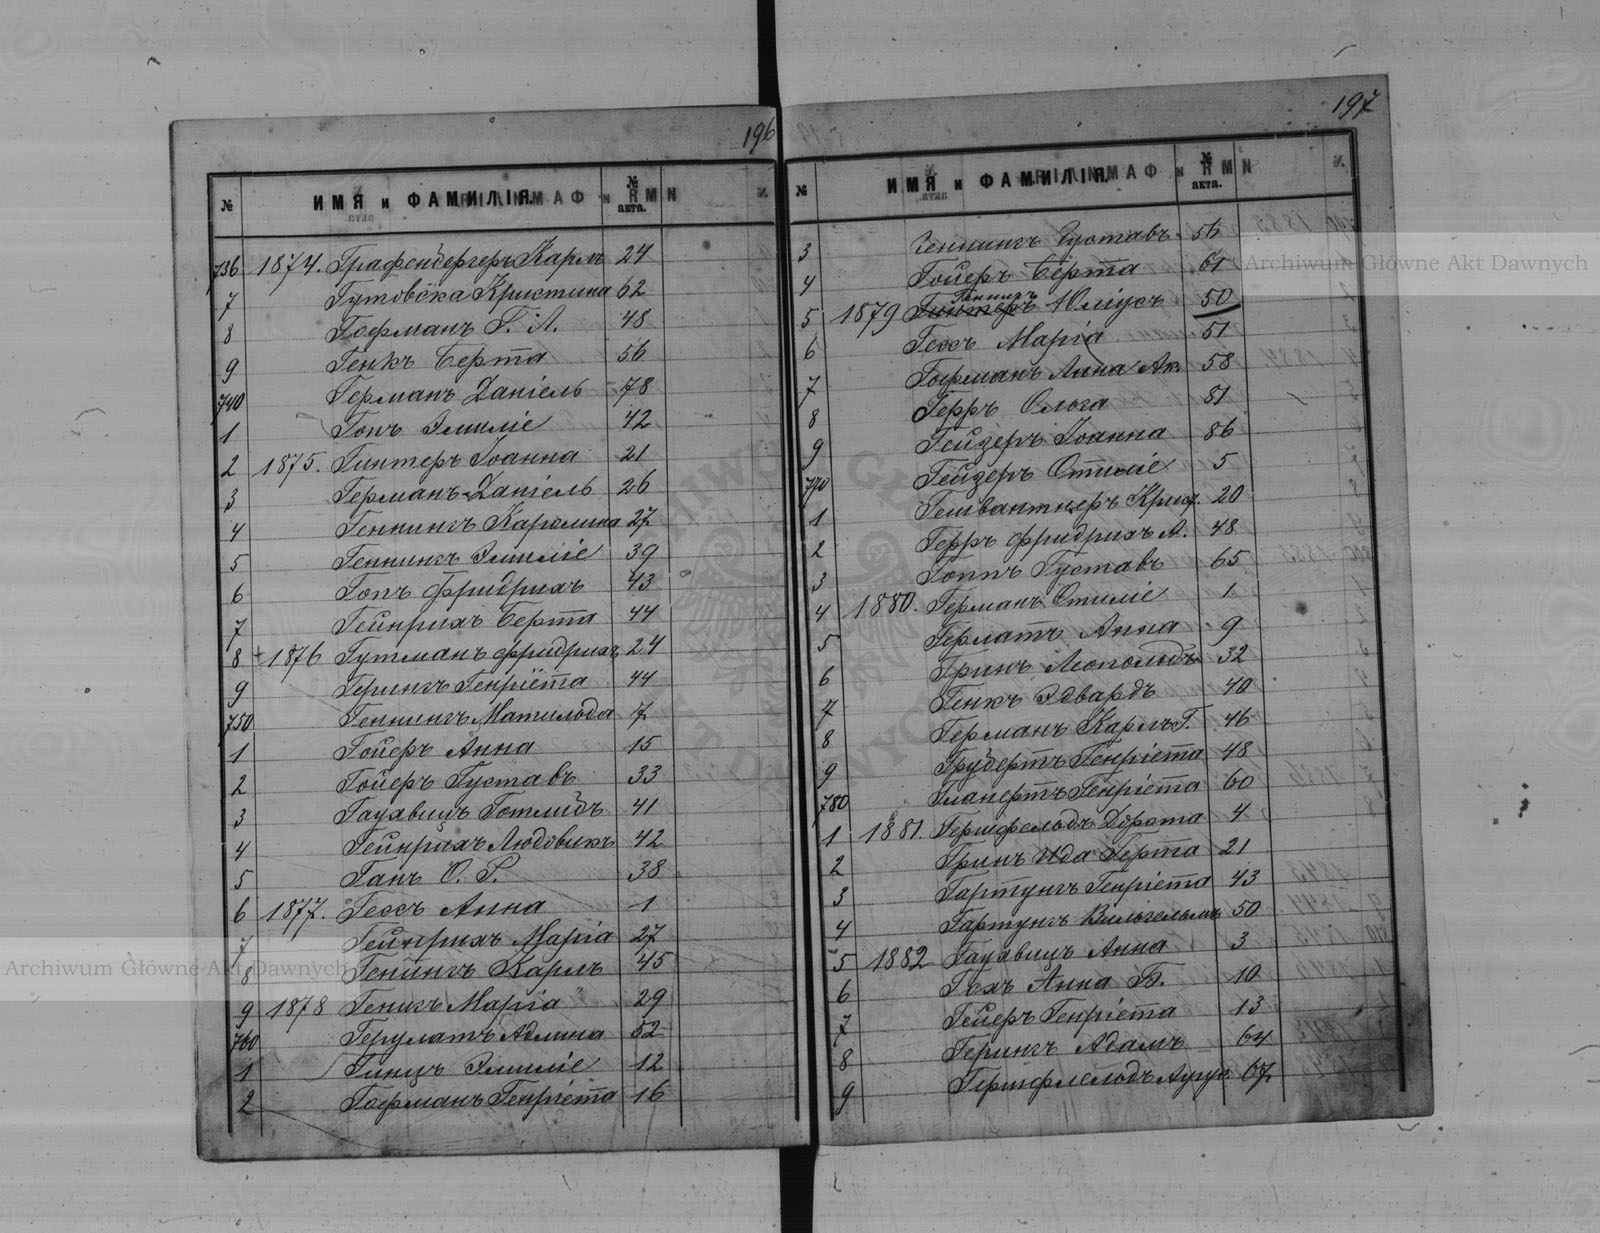 196
№ ИМЯ и ФАМИЛІЯ. № акта.
736 1874. Графенбергеръ Карлъ 24
7 Гутовска Кристина 62
8 Гофманъ Г. Л. 48
9 Генкъ Берта 56
740 Германъ Даніель 78
1 Гопъ Эмиліе 42
2 1875. Гинтеръ Іоанна 21
3 Германъ Даніель 26
4 Геннингъ Каролина 27
5 Геннингъ Эмиліе 39
6 Гопъ Фридрихъ 43
7 Гейнрихъ Берта 44
8 1876 Гутманъ Фридрихъ 24
9 Герингъ Генріета 44
750 Геннингъ Матильда 7
1 Гойеръ Анна 15
2 Гойеръ Густавъ 33
3 Гаухвицъ Готлибъ 41
4 Гейнрихъ Людовикъ 42
5 Ганъ О. Р. 38
6 1877. Гессъ Анна 1
7 Гейнрихъ Марія 27
8 Генингъ Карлъ 45
9 1878 Генигъ Марія 29
760 Герулатъ Адлина 52
1 Гинцъ Эмиліе 12
2 Гофманъ Генріета 16
197
№ ИМЯ и ФАМИЛІЯ. № акта.
3 Геннингъ Густавъ 56
4 Гойеръ Берта 61
5 1879 Юліусъ 50
6 Гессъ Марія 51
7 Гофманъ Анна Ак. 58
8 Герръ Ольга 81
9 Гейзеръ Іоанна 86
770 Гейзеръ Отиліе 5
1 Гешвантнеръ Крист. 20
2 Герръ Фридрихъ А. 48
3 Гоппъ Густавъ 65
4 1880. Германъ Отиліе 1
5 Герлатъ Анна 9
6 Гринъ Леопольдъ 32
7 Генкъ Эдвардъ 40
8 Германъ Карлъ Г. 46
9 Грубертъ Генріета 48
780 Гланертъ Генріета 60
1 1881. Гершфельдъ Дорота 4
2 Гринъ Ида Герта 21
3 Гартунгъ Генріета 43
4 Гартунгъ Вильгельмъ 50
5 1882 Гаухвицъ Анна 3
6 Гохъ Анна Б. 10
7 Гейеръ Генріета 13
8 Герингъ Адамъ 64
9 Гершфельдъ Аугус. 67
Archiwum Główne Akt Dawnych
Archiwum Główne Akt Dawnych